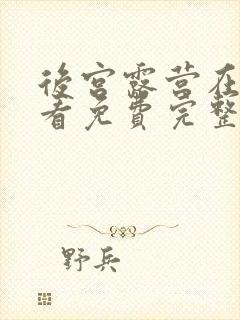 後宮露营在
看免費完整
野兵